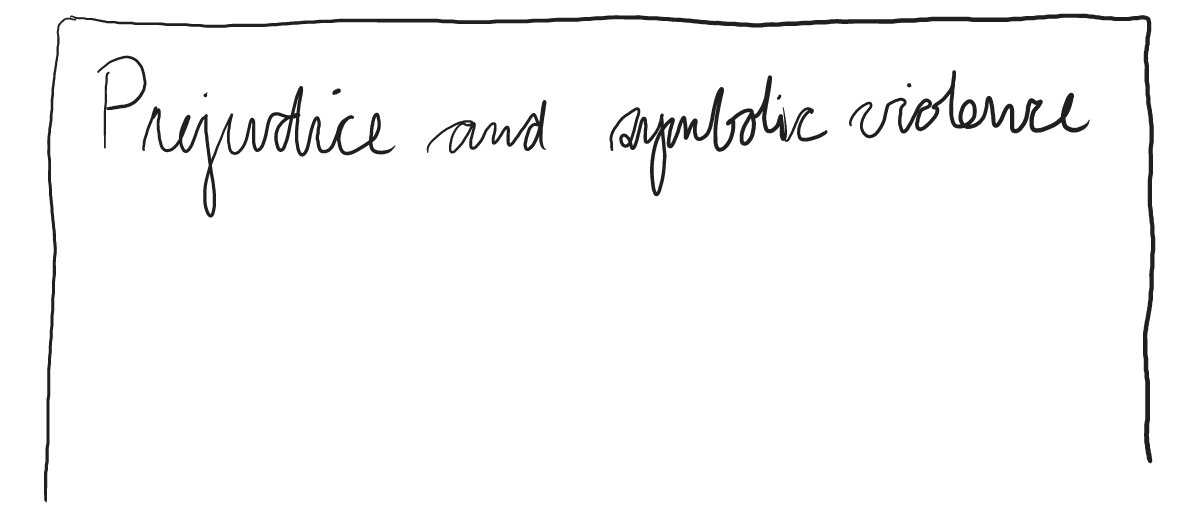 Prejudice and symbolic violence